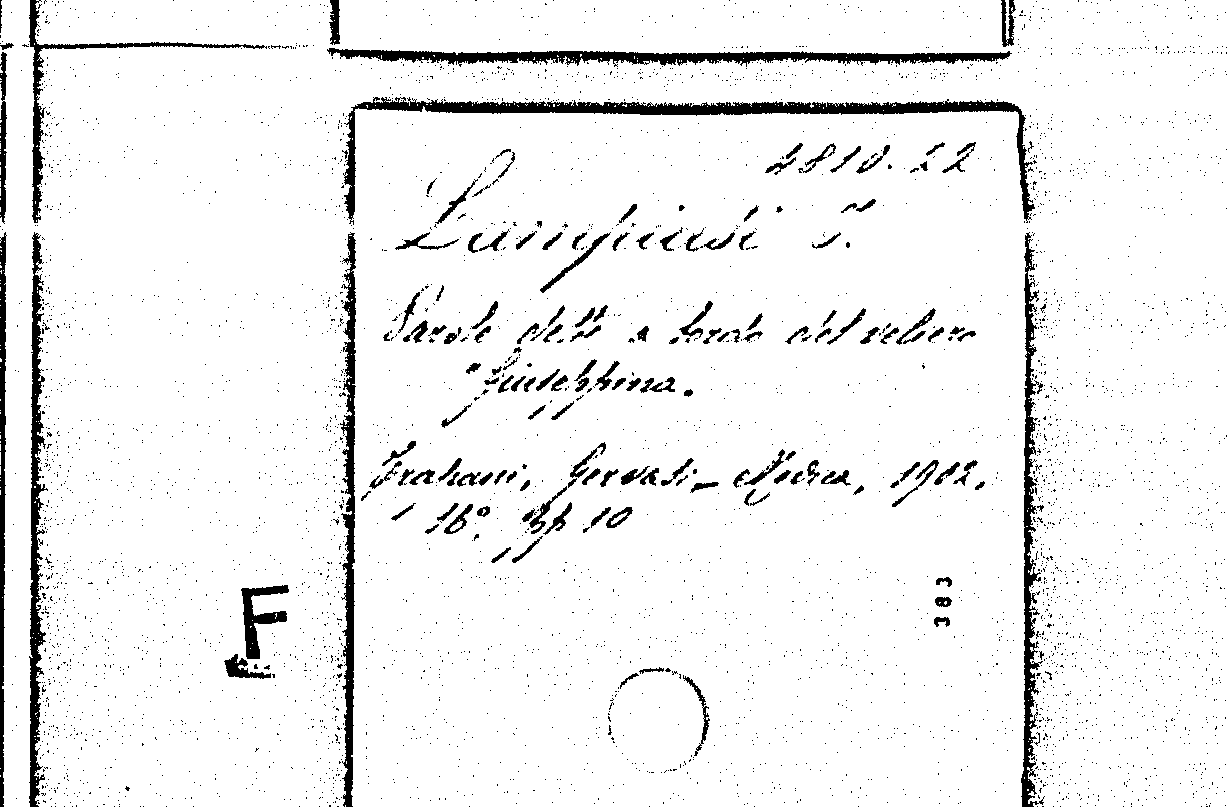 4810.22
Lampiasi I.
Parole dette a bordo del veliero
"Giuseppina.
Trapani, Gervasi-Modica, 1902.
16°. pp 10
303
F